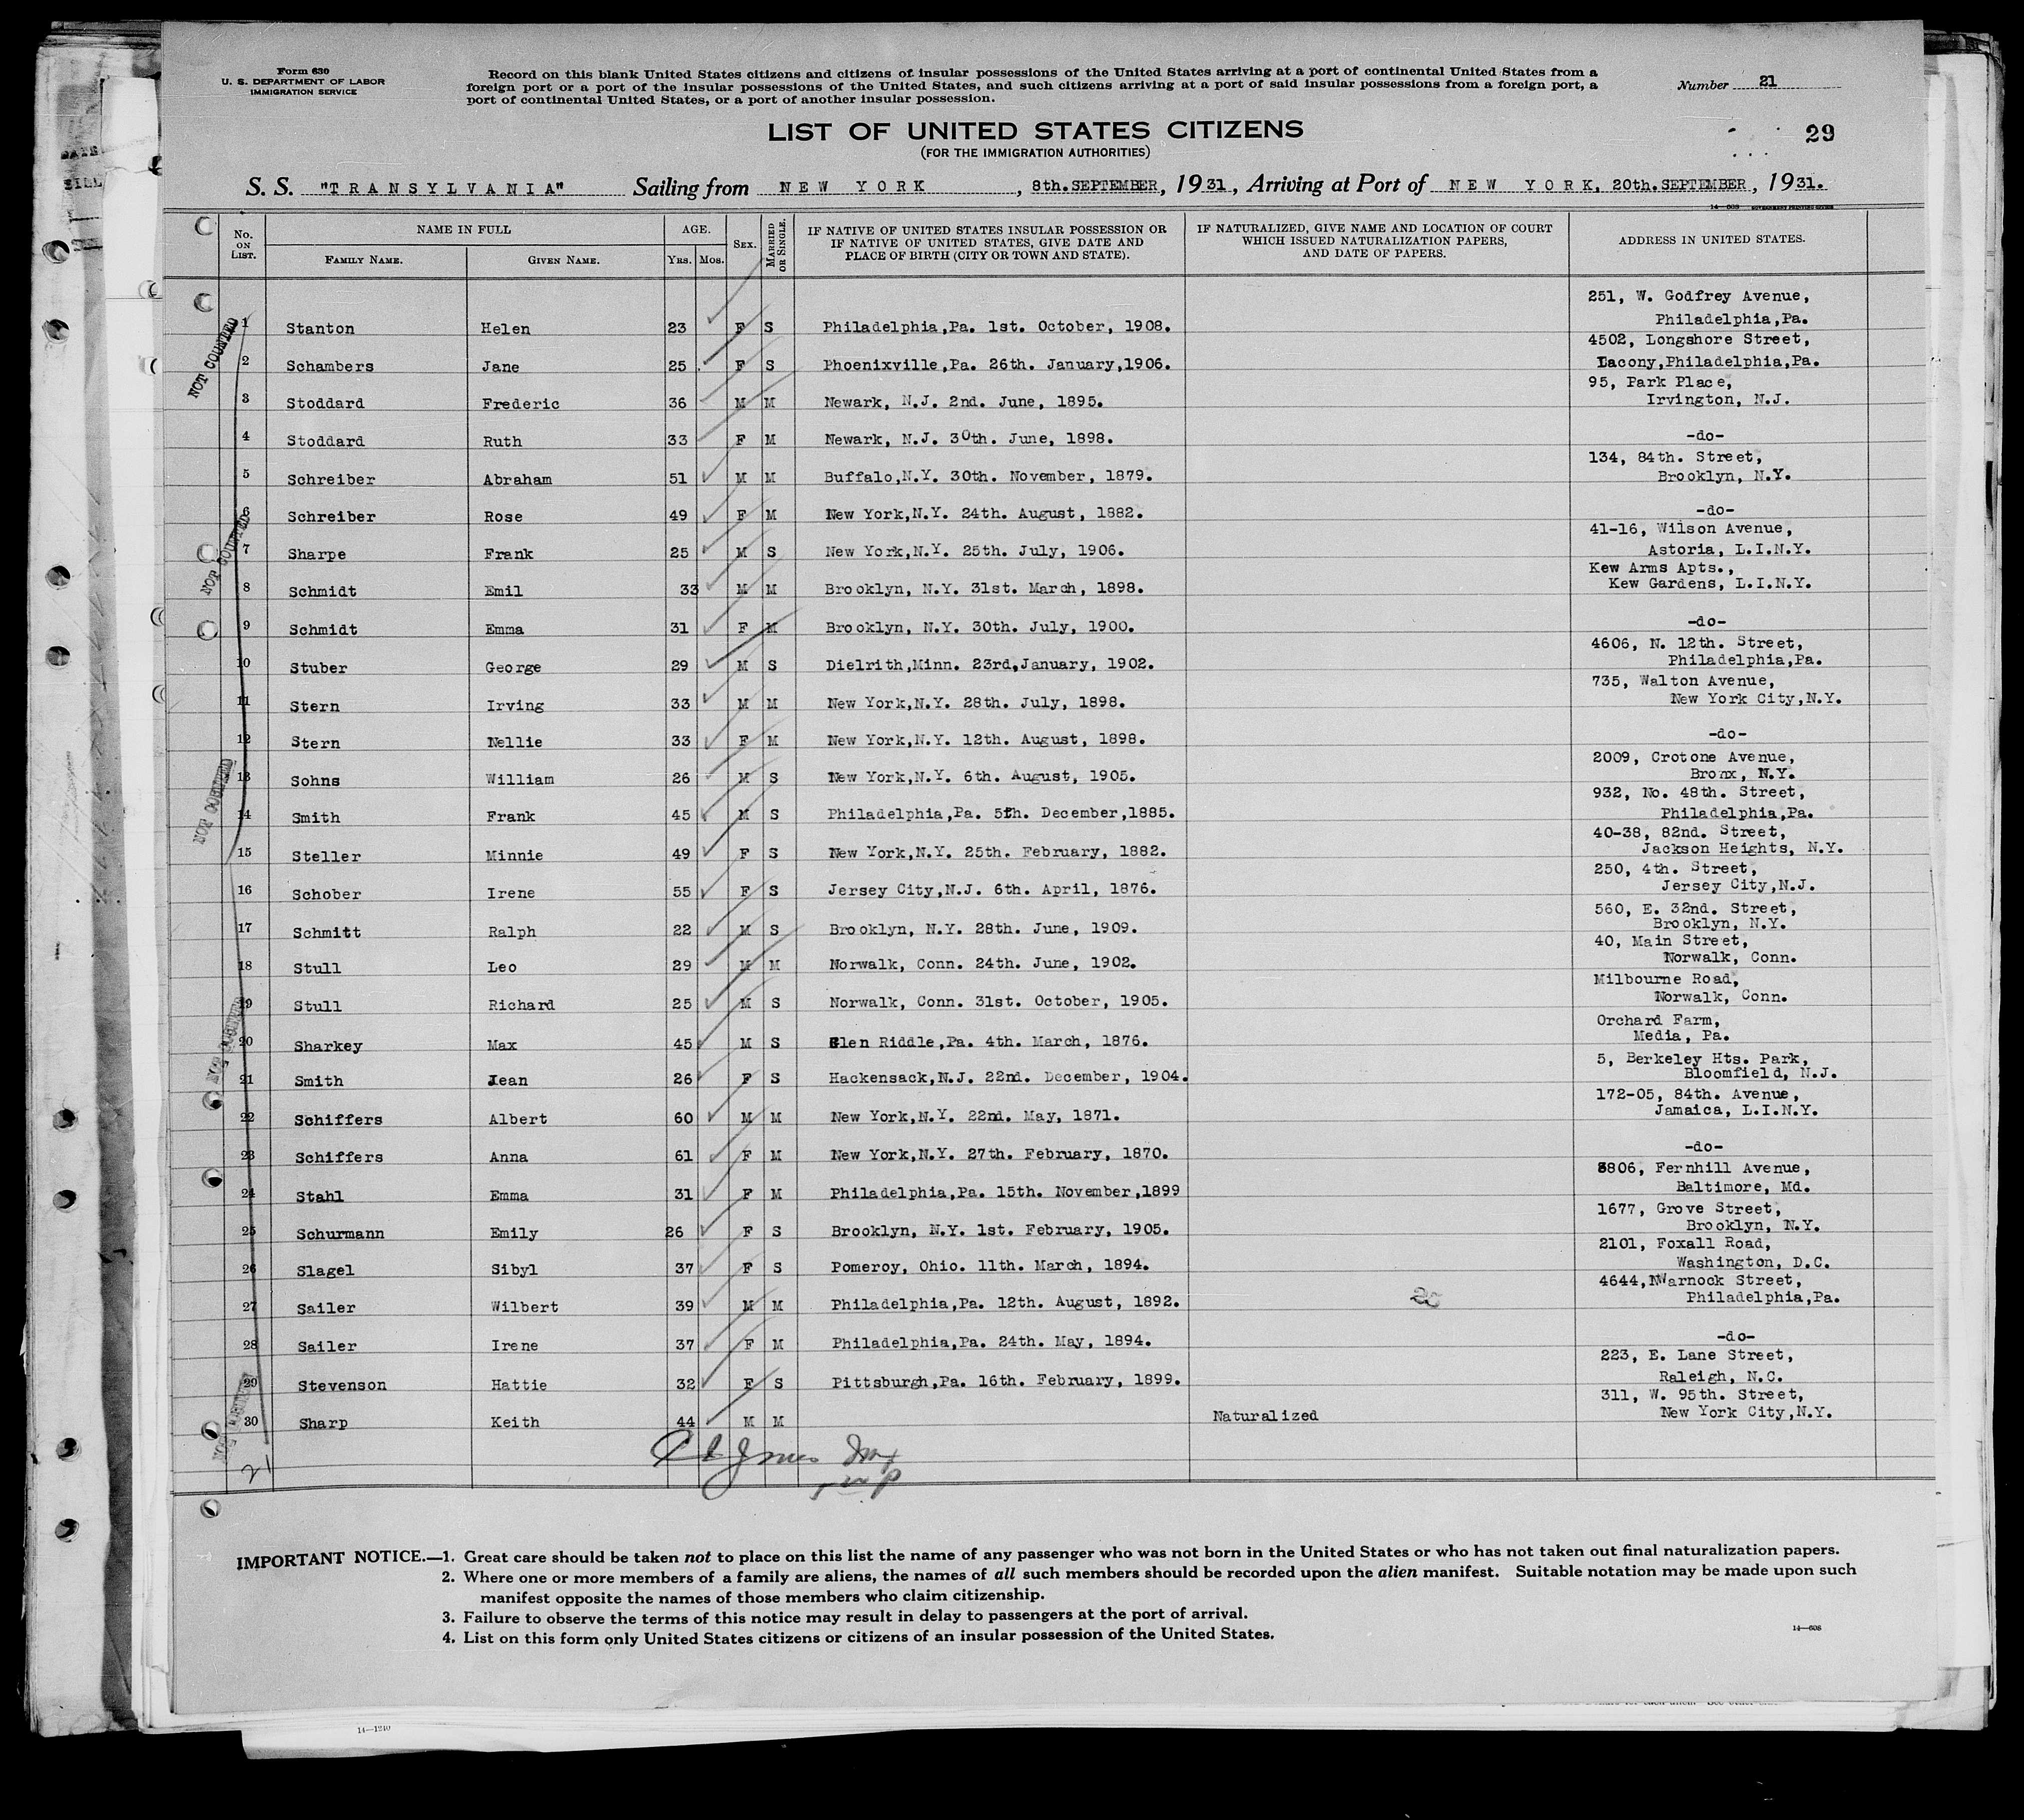 Form 630
U. S. DEPARTMENT OF LABOR
IMMIGRATION SERVICE
Record on this blank United States citizens and citizens of insular possessions of the United States arriving at a port of continental United States from a
foreign port or a port of the insular possessions of the United States, and such citizens arriving at a port of said insular possessions from a foreign port, a
port of continental United States, or a port of another insular possession.
Number 21
29
LIST OF UNITED STATES CITIZENS
(FOR THE IMMIGRATION AUTHORITIES)
S. S. "TRANSYLVANIA" Sailing from NEW YORK, 8th. SEPTEMBER, 1931, Arriving at Port of NEW YORK, 20th. SEPTEMBER, 1931.
14—608 GOVERNMENT PRINTING OFFICE
No. ON LIST. NAME IN FULL AGE. SEX. MARRIED OR SINGLE. IF NATIVE OF UNITED STATES INSULAR POSSESSION OR IF NATIVE OF UNITED STATES, GIVE DATE AND PLACE OF BIRTH (CITY OR TOWN AND STATE). IF NATURALIZED, GIVE NAME AND LOCATION OF COURT WHICH ISSUED NATURALIZATION PAPERS, AND DATE OF PAPERS. ADDRESS IN UNITED STATES.
FAMILY NAME. GIVEN NAME. YRS. MOS.
1 Stanton Helen 23 F S Philadelphia,Pa. 1st. October, 1908. 251, W. Godfrey Avenue, Philadelphia,Pa.
2 Schambers Jane 25 F S Phoenixville,Pa. 26th. January,1906. 4502, Longshore Street, Lacony,Philadelphia,Pa.
3 Stoddard Frederic 36 M M Newark, N.J. 2nd. June, 1895. 95, Park Place, Irvington, N.J.
4 Stoddard Ruth 33 F M Newark, N.J. 30th. June, 1898. -do-
5 Schreiber Abraham 51 M M Buffalo,N.Y. 30th. November, 1879. 134, 84th. Street, Brooklyn, N.Y.
6 Schreiber Rose 49 F M New York,N.Y. 24th. August, 1882. -do-
7 Sharpe Frank 25 M S New York,N.Y. 25th. July, 1906. 41-16, Wilson Avenue, Astoria, L.I.N.Y.
8 Schmidt Emil 33 M M Brooklyn, N.Y. 31st. March, 1898. Kew Arms Apts., Kew Gardens, L.I.N.Y.
9 Schmidt Emma 31 F M Brooklyn, N.Y. 30th. July, 1900. -do-
10 Stuber George 29 M S Dielrith,Minn. 23rd,January, 1902. 4606, N. 12th. Street, Philadelphia,Pa.
11 Stern Irving 33 M M New York,N.Y. 28th. July, 1898. 735, Walton Avenue, New York City,N.Y.
12 Stern Nellie 33 F M New York,N.Y. 12th. August, 1898. -do-
13 Sohns William 26 M S New York,N.Y. 6th. August, 1905. 2009, Crotone Avenue, Bronx, N.Y.
14 Smith Frank 45 M S Philadelphia,Pa. 5th. December,1885. 932, No. 48th. Street, Philadelphia,Pa.
15 Steller Minnie 49 F S New York,N.Y. 25th. February, 1882. 40-38, 82nd. Street, Jackson Heights, N.Y.
16 Schober Irene 55 F S Jersey City,N.J. 6th. April, 1876. 250, 4th. Street, Jersey City,N.J.
17 Schmitt Ralph 22 M S Brooklyn, N.Y. 28th. June, 1909. 560, E. 32nd. Street, Brooklyn, N.Y.
18 Stull Leo 29 M M Norwalk, Conn. 24th. June, 1902. 40, Main Street, Norwalk, Conn.
19 Stull Richard 25 M S Norwalk, Conn. 31st. October, 1905. Milbourne Road, Norwalk, Conn.
20 Sharkey Max 45 M S Glen Riddle,Pa. 4th. March, 1876. Orchard Farm, Media, Pa.
21 Smith Jean 26 F S Hackensack,N.J. 22nd. December, 1904. 5, Berkeley Hts. Park, Bloomfield, N.J.
22 Schiffers Albert 60 M M New York,N.Y. 22nd. May, 1871. 172-05, 84th. Avenue, Jamaica, L.I.N.Y.
23 Schiffers Anna 61 F M New York,N.Y. 27th. February, 1870. -do-
24 Stahl Emma 31 F M Philadelphia,Pa. 15th. November,1899 3806, Fernhill Avenue, Baltimore, Md.
25 Schurmann Emily 26 F S Brooklyn, N.Y. 1st. February, 1905. 1677, Grove Street, Brooklyn, N.Y.
26 Slagel Sibyl 37 F S Pomeroy, Ohio. 11th. March, 1894. 2101, Foxall Road, Washington, D.C.
27 Sailer Wilbert 39 M M Philadelphia,Pa. 12th. August, 1892. 4644,NWarnock Street, Philadelphia,Pa.
28 Sailer Irene 37 F M Philadelphia,Pa. 24th. May, 1894. -do-
29 Stevenson Hattie 32 F S Pittsburgh,Pa. 16th. February, 1899. 223, E. Lane Street, Raleigh, N.C.
30 Sharp Keith 44 M M Naturalized 311, W. 95th. Street, New York City,N.Y.
NOT COUNTED
NOT COUNTED
NOT COUNTED
NOT COUNTED
NOT COUNTED
21
IMPORTANT NOTICE.—1. Great care should be taken not to place on this list the name of any passenger who was not born in the United States or who has not taken out final naturalization papers.
2. Where one or more members of a family are aliens, the names of all such members should be recorded upon the alien manifest. Suitable notation may be made upon such
manifest opposite the names of those members who claim citizenship.
3. Failure to observe the terms of this notice may result in delay to passengers at the port of arrival.
4. List on this form only United States citizens or citizens of an insular possession of the United States.
14—608
14—1240